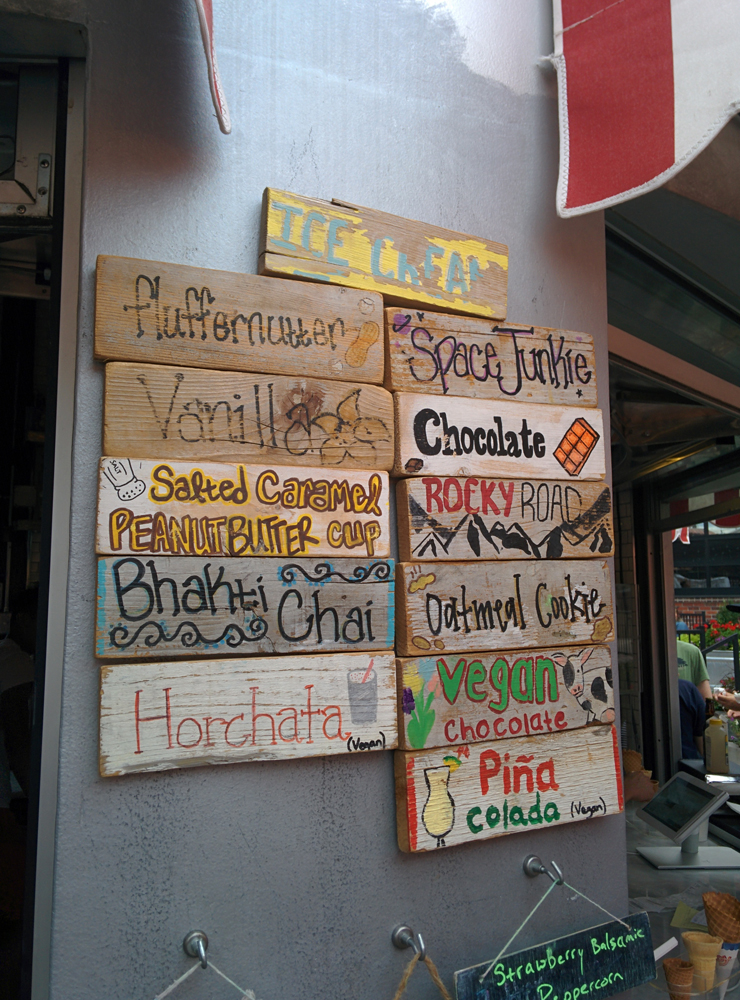 ICE CREAM
fluffernutter
Vanilla
SALT
Salted Caramel
PEANUT BUTTER CUP
Bhakti
Chai
Horchata
(Vegan)
Space Junkie
Chocolate
ROCKY ROAD
Oatmeal Cookie
Vegan
chocolate
Piña
colada (Vegan)
Strawberry Balsamic
Peppercorn